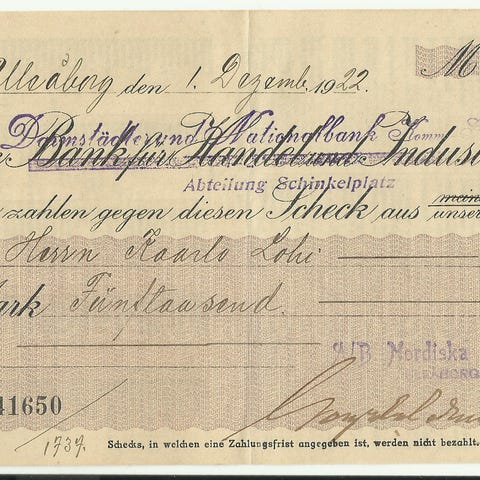 Uleåborg den 1. Dezemb. 1922. M
Darmstädter und Nationalbank Komm
Bank für Handel und Indus
Abteilung Schinkelplatz
zahlen gegen diesen Scheck aus unser
Herrn Kaarlo Lohi
ark Fünftausend.
A/B Nordiska
ULEÅBORG
41650
1737.
Schecks, in welchen eine Zahlungsfrist angegeben ist, werden nicht bezahlt.